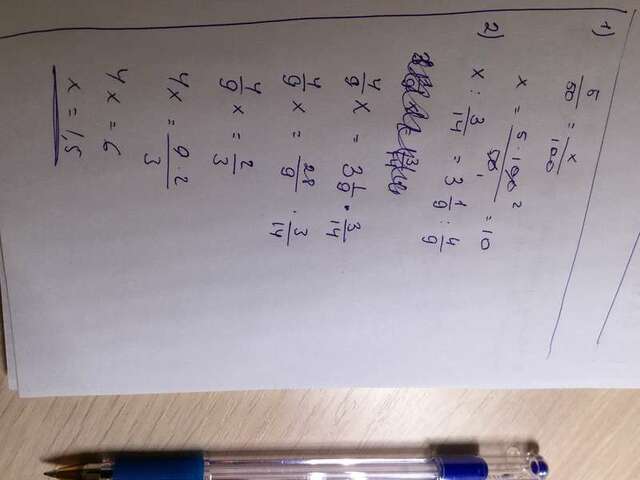 1)
5/50 = x/100
x = 5·100/50 = 10
2)
x : 3/14 = 3 1/9 : 4/9
4/9 x = 3 1/9 · 3/14
4/9 x = 28/9 · 3/14
4/9 x = 2/3
4x = 9·2/3
4x = 6
x = 1,5